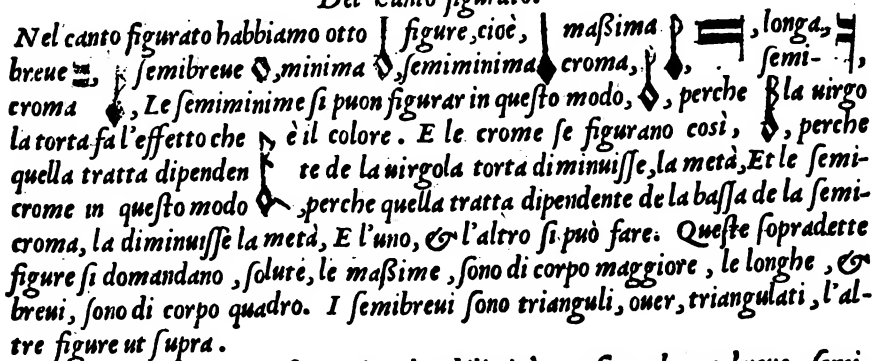 Del Canto figurato.
Nel canto figurato habbiamo otto figure, cioè, maſsima, longa,
breue, ſemibreue, minima, ſemiminima croma, ſemi-
croma, Le ſemiminime ſi puon figurar in queſto modo, perche la uirgo
la torta fa l'effetto che è il colore. E le crome ſe figurano così, perche
quella tratta dipenden te de la uirgola torta diminuiſſe, la metà, Et le ſemi-
crome in queſto modo, perche quella tratta dipendente de la baſſa de la ſemi-
croma, la diminuiſſe la metà, E l'uno, & l'altro ſi può fare. Queſte ſopradette
figure ſi domandano, ſolute, le maſsime, ſono di corpo maggiore, le longhe, &
breui, ſono di corpo quadro. I ſemibreui ſono trianguli, ouer, triangulati, l'al-
tre figure ut ſupra.